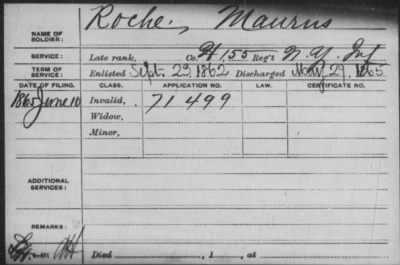 Roche, Maurus
NAME OF SOLDIER:
SERVICE: Late rank, Co. H, 155 Reg't N.Y. Inf
TERM OF SERVICE: Enlisted Sept. 23, 1862 Discharged May 29, 1865
DATE OF FILING. CLASS. APPLICATION NO. LAW. CERTIFICATE NO.
1865 June 10 Invalid, 71 499
Widow,
Minor,
ADDITIONAL SERVICES:
REMARKS:
Died , 1 , at